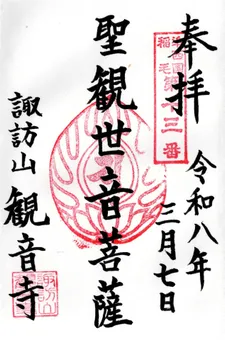 奉拝
令和八年
三月七日
稲毛
第十三番
聖観世音菩薩
諏訪山
観音寺